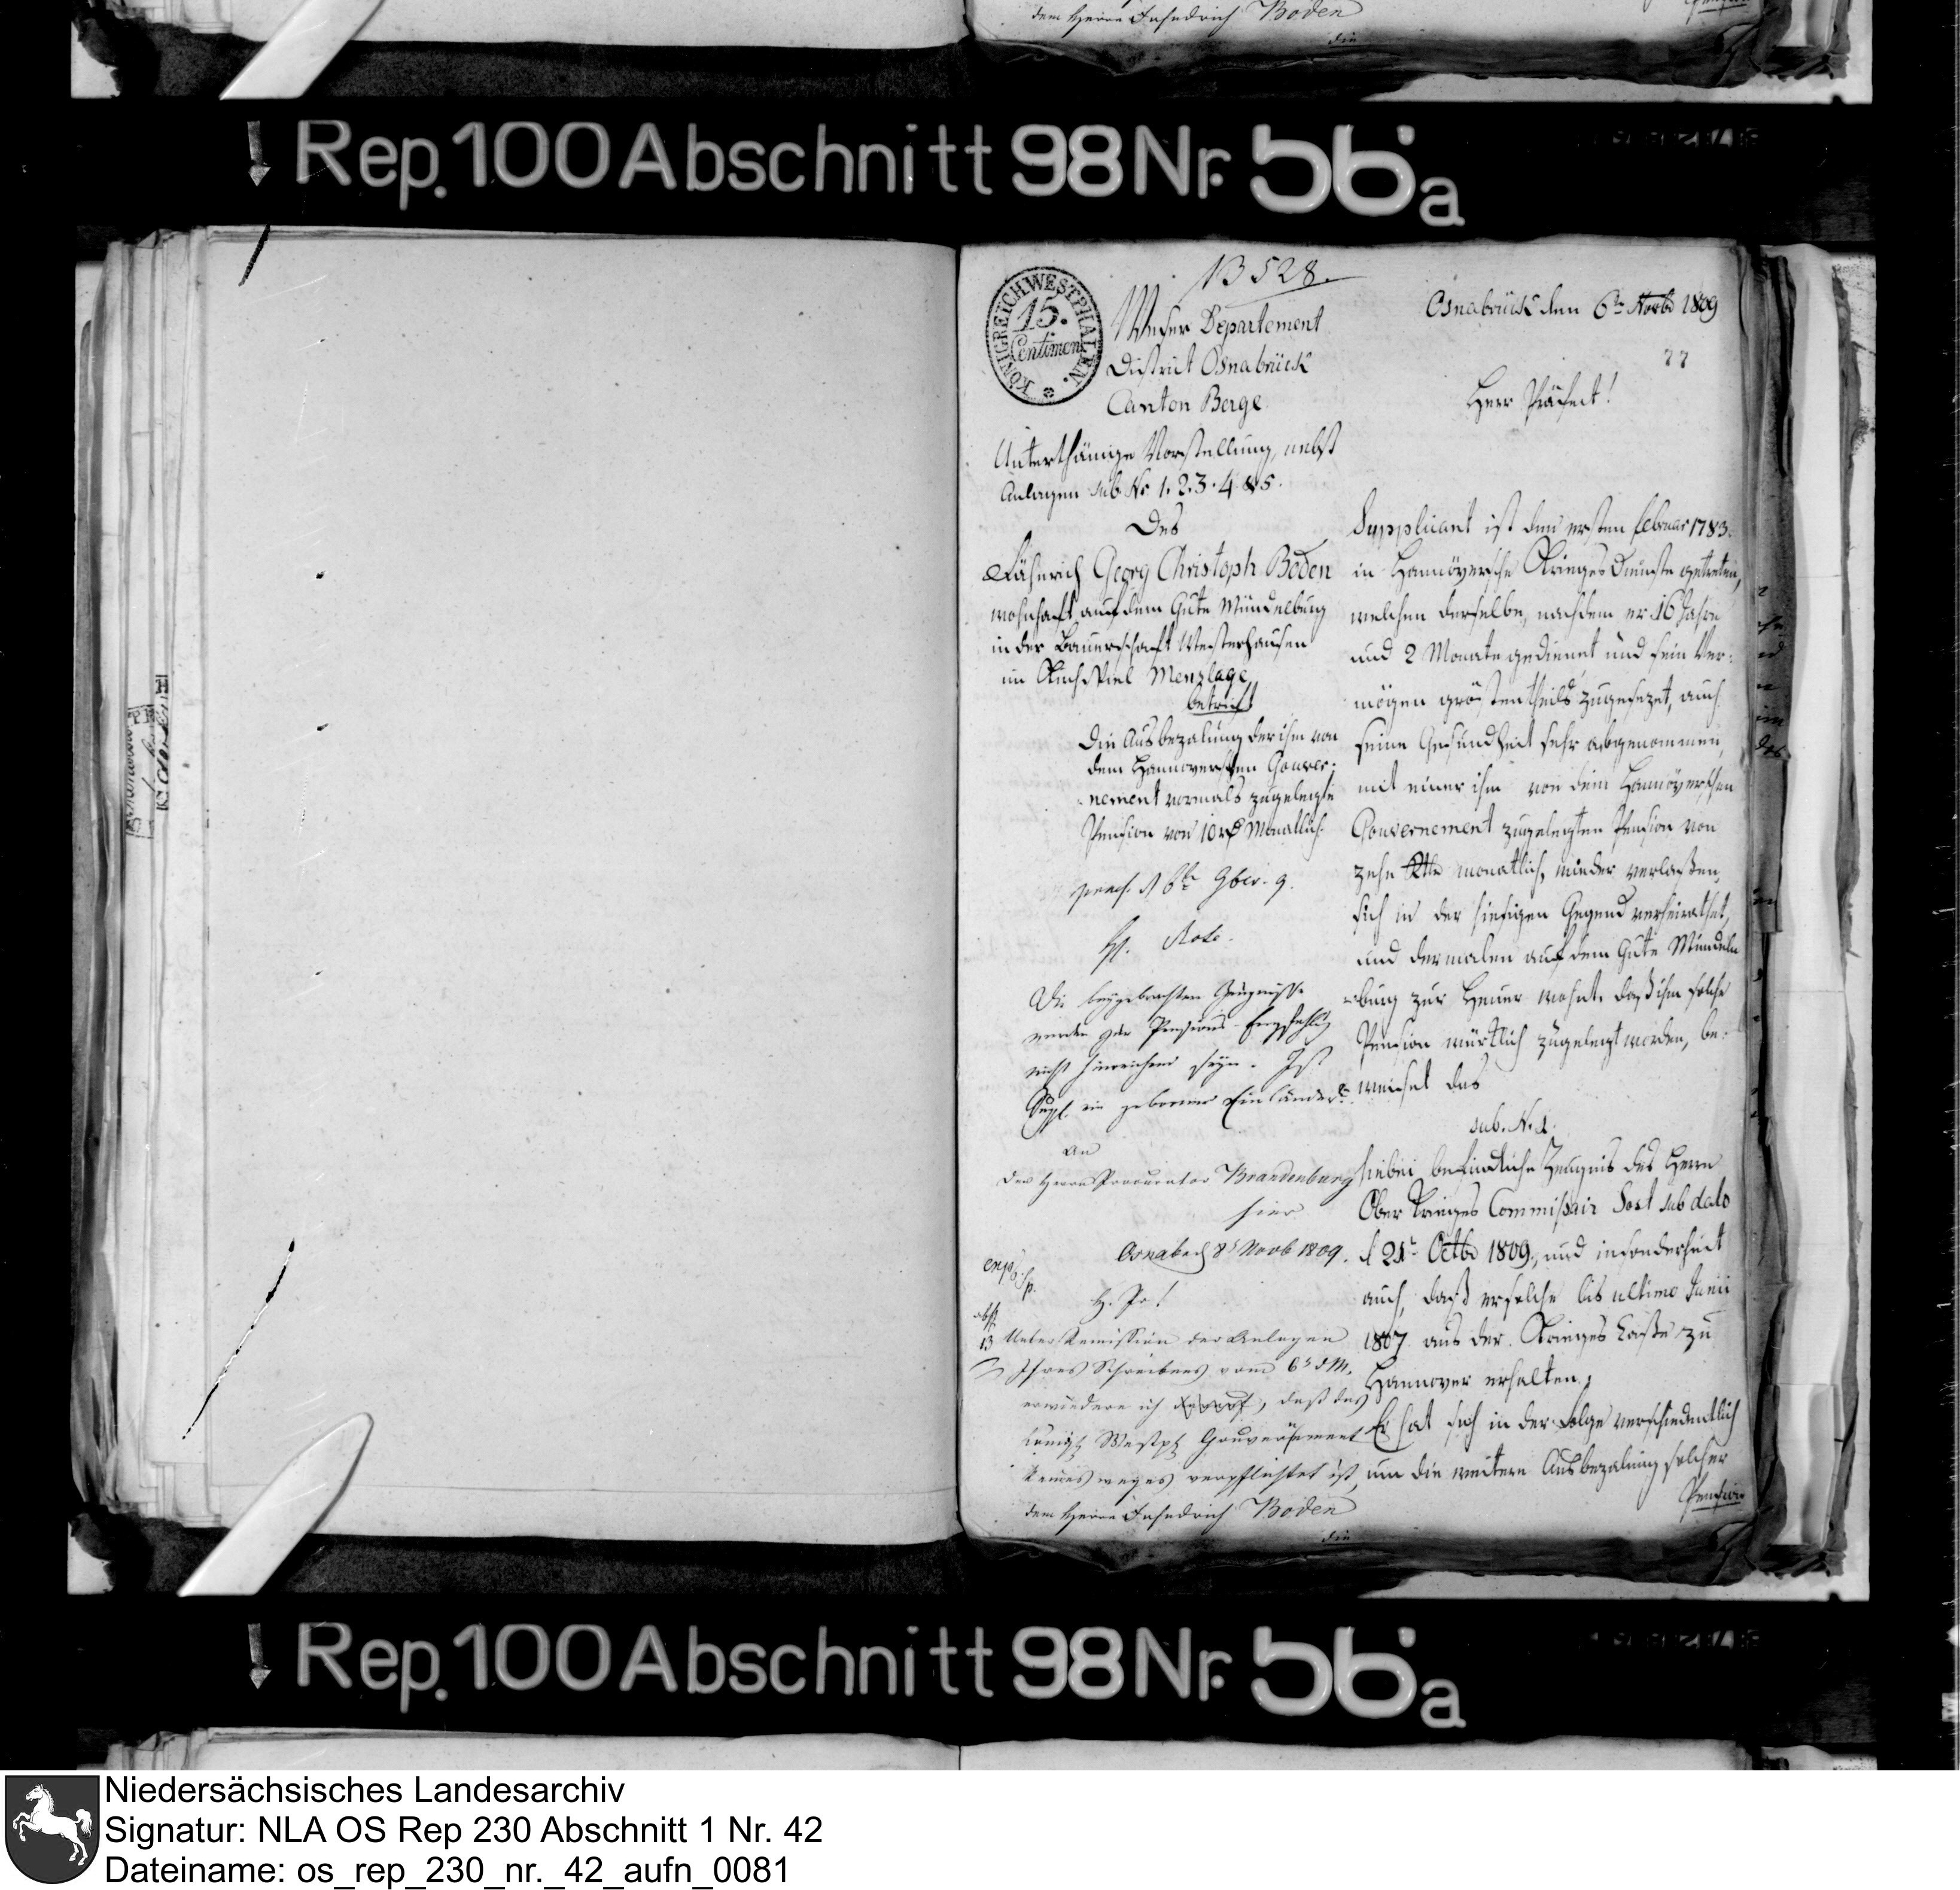 dem Herrn Fähndrich Boden
die
Rep. 100 Abschnitt 98 Nr. 56a
13528.
KÖNIGREICH WESTPHALEN.
15.
Centimen
Weser Departement
District Osnabrück
Canton Berge
Unterthänige Vorstellung, nebst
Anlagen sub No 1. 2. 3. 4 & 5.
Des
Fähnrich Georg Christoph Boden
wohnhaft auf dem Gute Mündelburg
in der Bauerschaft Westerhausen
im Kirchspiel Menzlage
betrift
Die Ausbezalung der ihm von
dem Hannoverschen Gouver-
nement vormals zugelegte
Pension von 10 rt Monatlich.
praes. d 6t 9ber. 9.
Die beygebrachten Zeugnisse
werden zur Pensions-Empfehlung
nicht hinreichend seyn. Ist
Suppl. ein geborner Einländer?
An
den Herrn Procurator Brandenburg
hier
Osnabrück 8t Novb 1809.
H. Pr!
Unter Remission der Anlagen
Ihres Schreibens vom 6t d M.
erwiedere ich, daß das
königl Westph Gouvernement
keinesweges verpflichtet ist,
dem Herrn Fähndrich Boden
die
Osnabrück den 6tn Novbr 1809
77
Herr Präfect!
Supplicant ist den ersten Februar 1783.
in Hannöversche Krieges Dienste getreten,
welchen derselbe, nachdem er 16 Jahre
und 2 Monate gedienet und sein Ver-
mögen grösten theils zugesezet, auch
seine Gesundheit sehr abgenommen,
mit einer ihm von dem Hannöverschen
Gouvernement zugelegten Pension von
zehn Rtlr monatlich, wieder verlaßen,
sich in der hiesigen Gegend verheirathet,
und dermalen auf dem Gute Mündeln
-burg zur Heuer wohnt. Daß ihm solche
Pension würklich zugelegt worden, be-
weiset das
sub. N. 1.
hiebei befindliche Zeugnis des Herrn
Ober Krieges Commißair Sost sub dato
d 21t Octbr 1809, und insonderheit
auch, daß er solche bis ultimo Junii
1807 aus der Krieges Caße zu
Hannover erhalten.
Er hat sich in der Folge verschiedentlich
um die weitere Ausbezalung solcher
Pension
Rep. 100 Abschnitt 98 Nr. 56a
Niedersächsisches Landesarchiv
Signatur: NLA OS Rep 230 Abschnitt 1 Nr. 42
Dateiname: os_rep_230_nr._42_aufn_0081